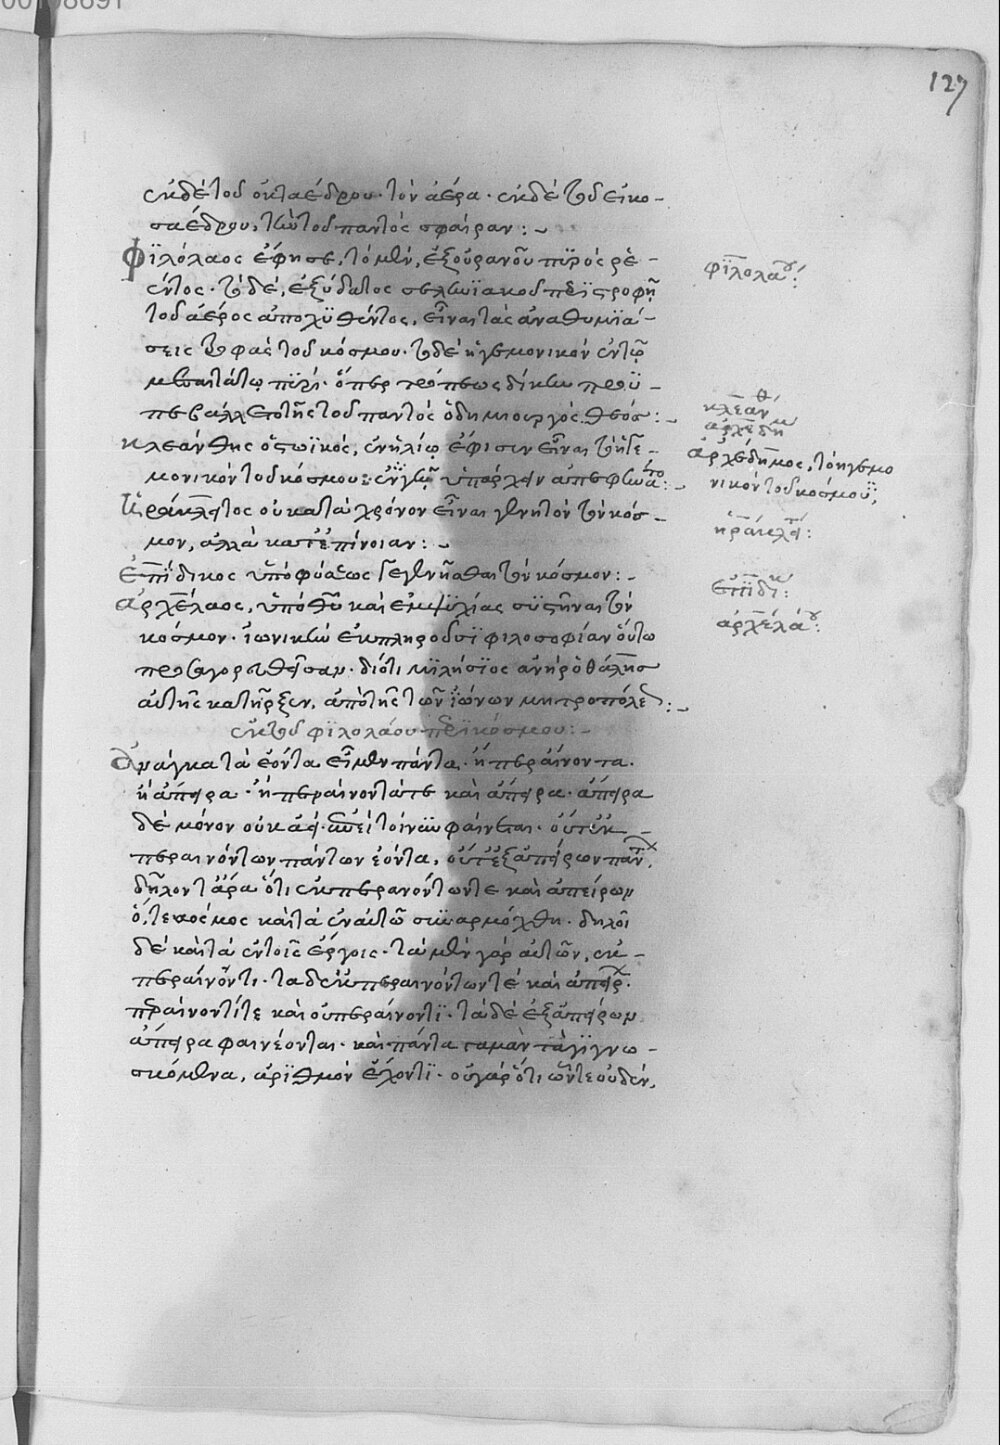 127
ἐκ δὲ τοῦ ὀκταέδρου· τὸν ἀέρα· ἐκ δὲ τοῦ εἰκο-
σαέδρου, τὴν τοῦ παντὸς σφαῖραν:-
Φιλόλαος ἔφησε, τὸ μὲν, ἐξ οὐρανοῦ πυρὸς ῥε-
έντος· τὸ δὲ, ἐξ ὕδατος σεληνιακοῦ περιστροφῆ
τοῦ ἀέρος ἀποχυθέντος, εἶναι τὰς ἀναθυμιά-
σεις τροφὰς τοῦ κόσμου· τὸ δὲ ἡγεμονικὸν ἐν τῷ
μεσαιτάτῳ πυρί· ὅπερ τρόπεως δίκην προϋ-
πεβάλλετο τῆς τοῦ παντὸς ὁ δημιουργὸς θεός:-
Κλεάνθης ὁ στωϊκὸς, ἐν ἡλίῳ ἔφισεν εἶναι τὸ ἡγε-
μονικὸν τοῦ κόσμου: ἐν γῇ ὑπάρχειν ἀπεφήνατο:-
Ἡράκλειτος οὐ κατὰ χρόνον εἶναι γενητὸν τὸν κόσ-
μον, ἀλλὰ κατ' ἐπίνοιαν:-
Ἐπίδικος ὑπὸ φύσεως γεγενῆσθαι τὸν κόσμον:-
Ἀρχέλαος, ὑπὸ θερμοῦ καὶ ἐμψυχίας συστῆναι τὸν
κόσμον· ἰωνικὴν ἐκπληροῦσι φιλοσοφίαν οὕτω
προσαγορευθεῖσαν· διότι μιλήσιος ἀνὴρ ὁ θάλης
αὐτῆς κατῆρξεν, ἀπὸ τῆς τῶν ἰώνων μητροπόλεως:-
ἐκ τοῦ φιλολάου περὶ κόσμου:-
Ἀνάγκα τὰ ἐόντα εἶμεν πάντα· ἢ περαίνοντα·
ἢ ἄπειρα· ἢ περαίνοντά τε καὶ ἄπειρα· ἄπειρα
δὲ μόνον οὐκ ἀεί· ἐπεὶ τοίνυν φαίνεται· οὔτ' ἐκ
περαινόντων πάντων ἐόντα, οὔτ' ἐξ ἀπείρων πάντων,
δῆλον τἄρα ὅτι ἐκ περαινόντων τε καὶ ἀπείρων
ὅ, τε κόσμος καὶ τὰ ἐν αὐτῷ συναρμόχθη· δηλοῖ
δὲ καὶ τὰ ἐν τοῖς ἔργοις· τὰ μὲν γὰρ αὐτῶν, ἐκ
περαινόντων περαίνοντι· τὰ δ' ἐκ περαινόντων τε καὶ ἀπείρων
περαίνοντί τε καὶ οὐ περαίνοντι· τὰ δὲ ἐξ ἀπείρων
ἄπειρα φαινέονται· καὶ πάντα γα μὰν τὰ γιγνω-
σκόμενα, ἀριθμὸν ἔχοντι· οὐ γὰρ ὅτι ὧν τε οὐδὲν,
φιλολάου:
κλεάνθ
ἀρχεδημ
ἀρχέδημος, τὸ ἡγεμο
νικὸν τοῦ κόσμου,
ἡρακλεί:
ἐπιδίκ:
ἀρχελάου: